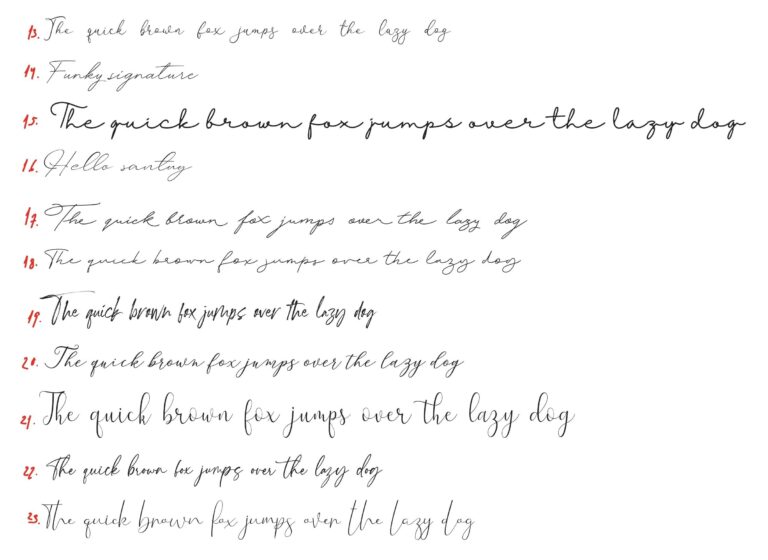 13. The quick brown fox jumps over the lazy dog
14. Funky signature
15. The quick brown fox jumps over the lazy dog
16. Hello santuy
17. The quick brown fox jumps over the lazy dog
18. The quick brown fox jumps over the lazy dog
19. The quick brown fox jumps over the lazy dog
20. The quick brown fox jumps over the lazy dog
21. The quick brown fox jumps over the lazy dog
22. The quick brown fox jumps over the lazy dog
23. The quick brown fox jumps over the lazy dog